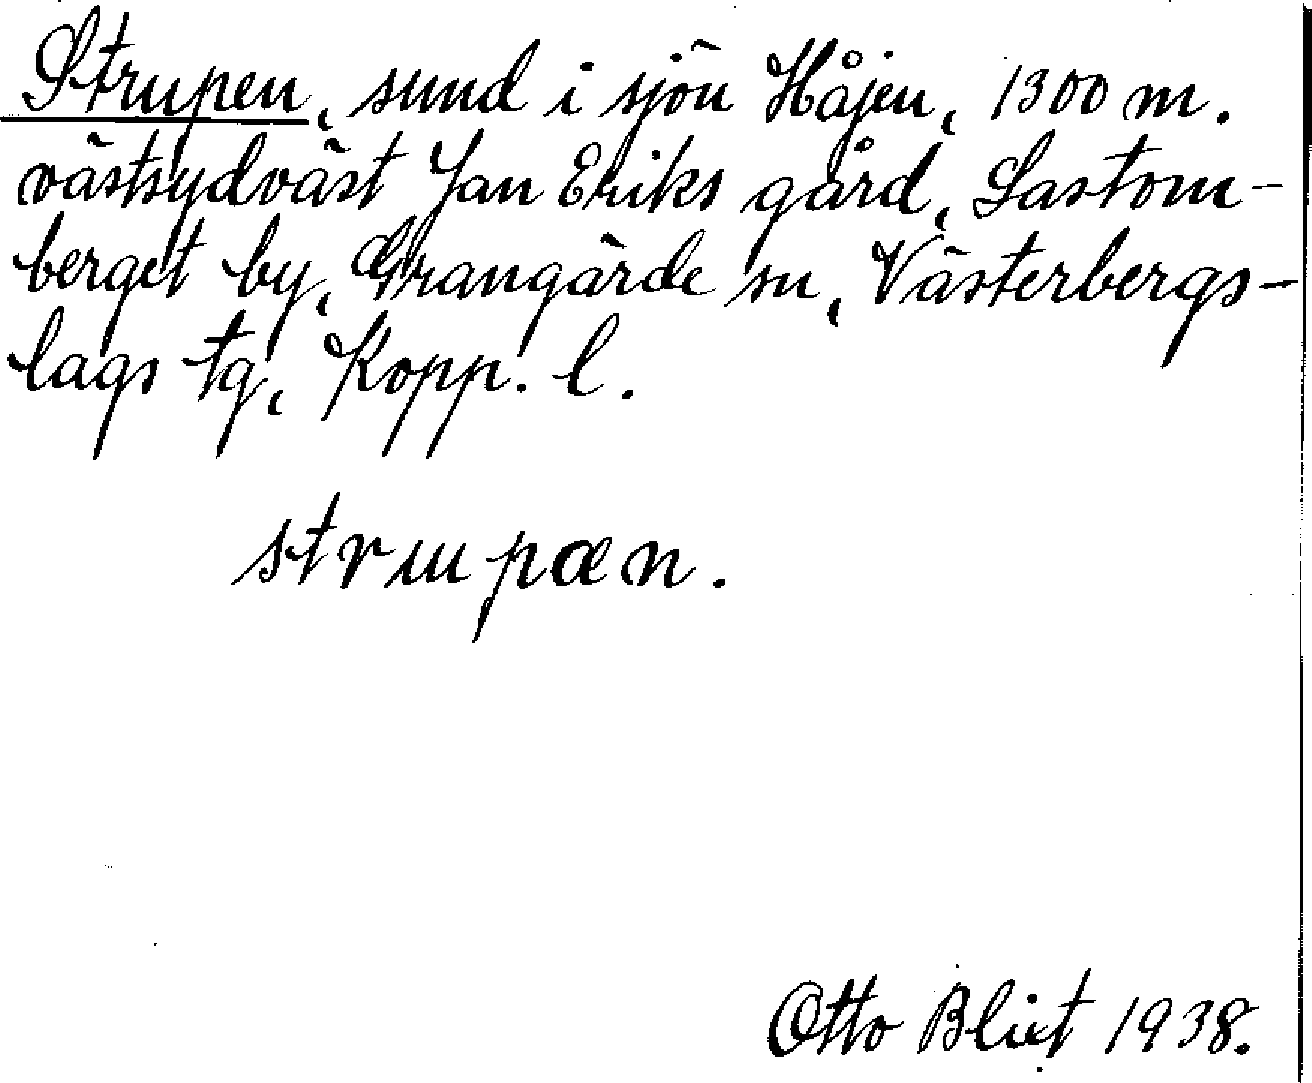 Strupen, sund i sjön Håjen, 1300 m.
västsydväst Jan Eriks gård, Lastom-
berget by, Grangärde sn, Västerbergs-
lags tg, Kopp. l.
strupæn.
Otto Blixt 1938.